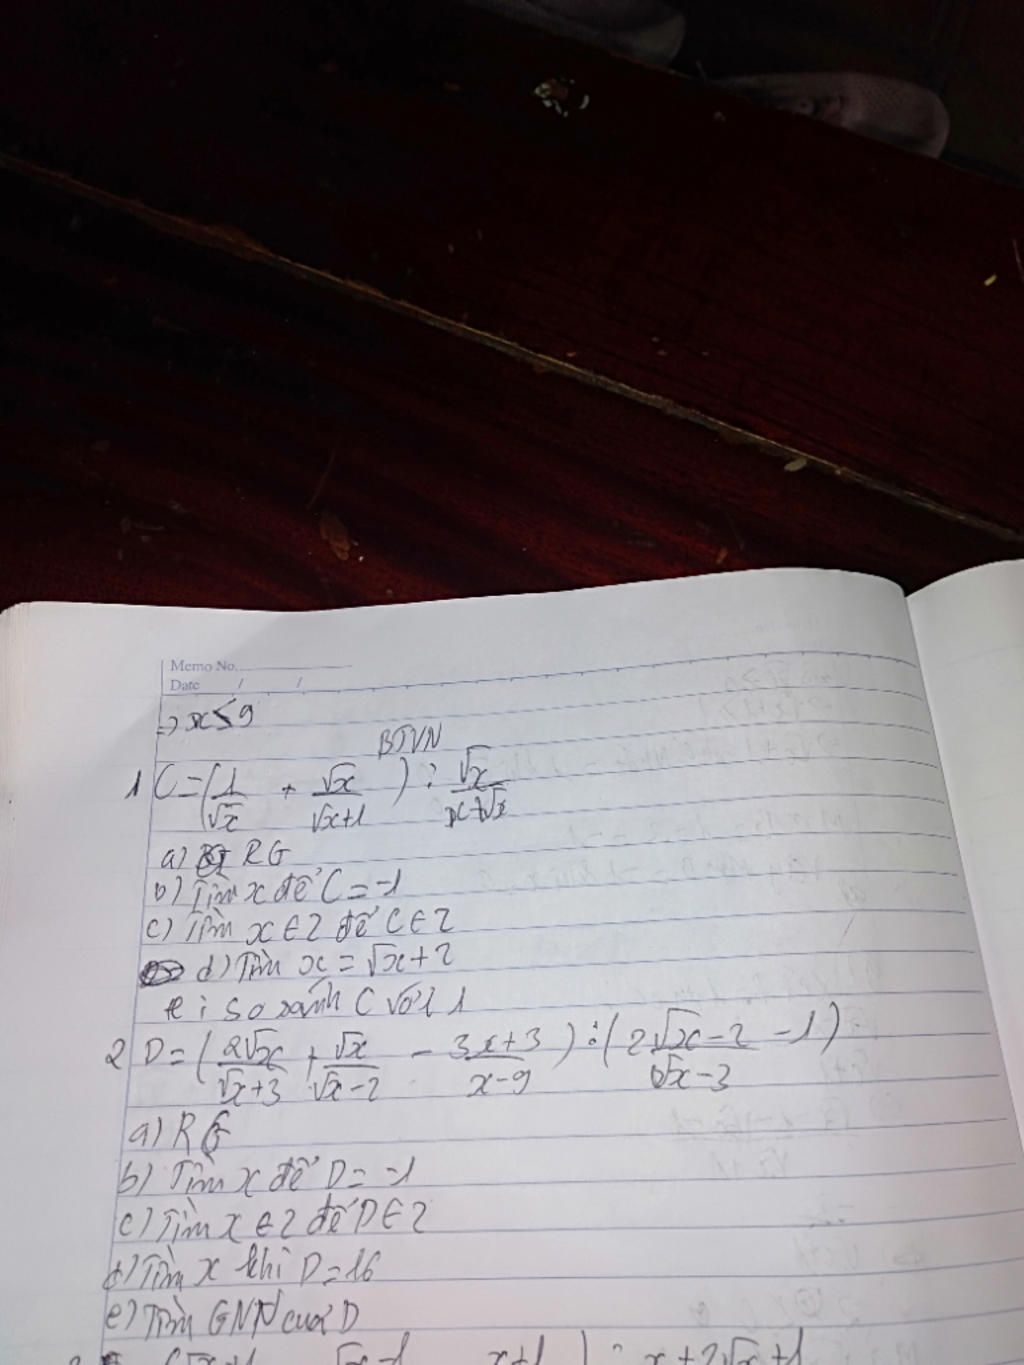 Memo No.
Date / /
=> x ≤ 9
BTVN
1 C = (1/√x + √x/(√x+1)) : √x/(x+√x)
a) RG
b) Tìm x để C = -1
c) Tìm x ∈ Z để C ∈ Z
d) Tìm x = √x+2
e: so sánh C với 1
2 D = (2√x/(√x+3) + √x/(√x-2) - (3x+3)/(x-9)) : ((2√x-2)/(√x-3) - 1)
a) RG
b) Tìm x để D = -1
c) Tìm x ∈ Z để D ∈ Z
d) Tìm x khi D = 16
e) Tìm GNN của D
x+1 ) : x+2√x+1